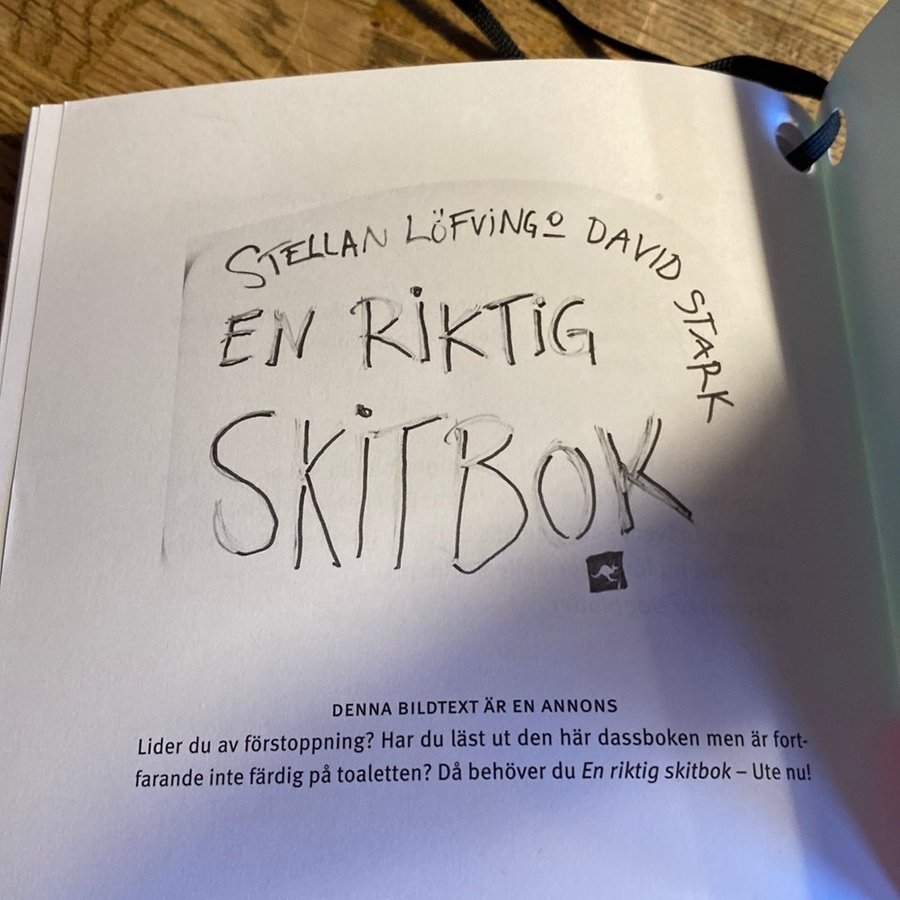 STELLAN LÖFVING O DAVID STARK
EN RIKTIG
SKITBOK
DENNA BILDTEXT ÄR EN ANNONS
Lider du av förstoppning? Har du läst ut den här dassboken men är fort-
farande inte färdig på toaletten? Då behöver du En riktig skitbok – Ute nu!